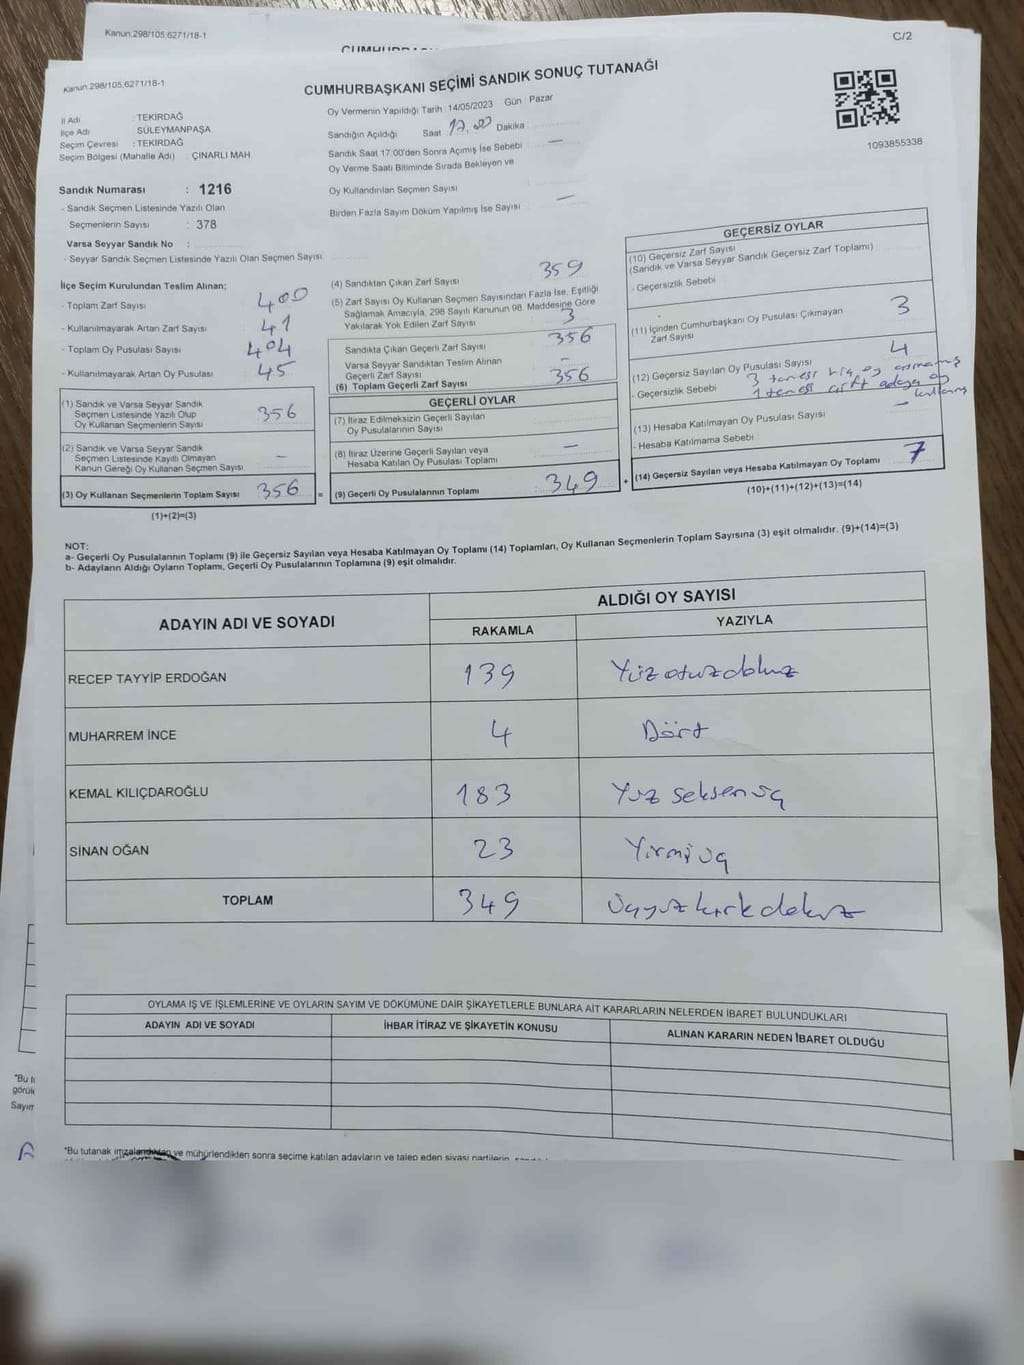 Kanun:298/105,6271/18-1
C/2
Kanun:298/105,6271/18-1
CUMHURBAŞKANI SEÇİMİ SANDIK SONUÇ TUTANAĞI
İl Adı : TEKİRDAĞ
İlçe Adı : SÜLEYMANPAŞA
Seçim Çevresi : TEKİRDAĞ
Seçim Bölgesi (Mahalle Adı) : ÇINARLI MAH.
Oy Vermenin Yapıldığı Tarih 14/05/2023 Gün Pazar
Sandığın Açıldığı Saat 17,00 Dakika
Sandık Saat 17:00'den Sonra Açımış İse Sebebi —
Oy Verme Saati Bitiminde Sırada Bekleyen ve
Oy Kullandırılan Seçmen Sayısı
Birden Fazla Sayım Döküm Yapılmış İse Sayısı —
1093855338
Sandık Numarası : 1216
- Sandık Seçmen Listesinde Yazılı Olan
Seçmenlerin Sayısı : 378
Varsa Seyyar Sandık No :
- Seyyar Sandık Seçmen Listesinde Yazılı Olan Seçmen Sayısı
İlçe Seçim Kurulundan Teslim Alınan;
- Toplam Zarf Sayısı 400
- Kullanılmayarak Artan Zarf Sayısı 41
- Toplam Oy Pusulası Sayısı 404
- Kullanılmayarak Artan Oy Pusulası 45
(1) Sandık ve Varsa Seyyar Sandık
Seçmen Listesinde Yazılı Olup
Oy Kullanan Seçmenlerin Sayısı 356
(2) Sandık ve Varsa Seyyar Sandık
Seçmen Listesinde Kayıtlı Olmayan
Kanun Gereği Oy Kullanan Seçmen Sayısı —
(3) Oy Kullanan Seçmenlerin Toplam Sayısı 356 =
(1)+(2)=(3)
(4) Sandıktan Çıkan Zarf Sayısı 359
(5) Zarf Sayısı Oy Kullanan Seçmen Sayısından Fazla İse, Eşitliği
Sağlamak Amacıyla, 298 Sayılı Kanunun 98. Maddesine Göre
Yakılarak Yok Edilen Zarf Sayısı 3
Sandıkta Çıkan Geçerli Zarf Sayısı 356
Varsa Seyyar Sandıktan Teslim Alınan
Geçerli Zarf Sayısı —
(6) Toplam Geçerli Zarf Sayısı 356
GEÇERLİ OYLAR
(7) İtiraz Edilmeksizin Geçerli Sayılan
Oy Pusulalarının Sayısı
(8) İtiraz Üzerine Geçerli Sayılan veya
Hesaba Katılan Oy Pusulası Toplamı —
(9) Geçerli Oy Pusulalarının Toplamı 349 +
GEÇERSİZ OYLAR
(10) Geçersiz Zarf Sayısı
(Sandık ve Varsa Seyyar Sandık Geçersiz Zarf Toplamı)
- Geçersizlik Sebebi
(11) İçinden Cumhurbaşkanı Oy Pusulası Çıkmayan
Zarf Sayısı 3
(12) Geçersiz Sayılan Oy Pusulası Sayısı 4
- Geçersizlik Sebebi 3 tanesi hiç oy
1 tanesi çift adaya oy
(13) Hesaba Katılmayan Oy Pusulası Sayısı —
- Hesaba Katılmama Sebebi
(14) Geçersiz Sayılan veya Hesaba Katılmayan Oy Toplamı 7
(10)+(11)+(12)+(13)=(14)
NOT:
a- Geçerli Oy Pusulalarının Toplamı (9) ile Geçersiz Sayılan veya Hesaba Katılmayan Oy Toplamı (14) Toplamları, Oy Kullanan Seçmenlerin Toplam Sayısına (3) eşit olmalıdır. (9)+(14)=(3)
b- Adayların Aldığı Oyların Toplamı, Geçerli Oy Pusulalarının Toplamına (9) eşit olmalıdır.
ADAYIN ADI VE SOYADI
ALDIĞI OY SAYISI
RAKAMLA YAZIYLA
RECEP TAYYİP ERDOĞAN 139 Yüzotuzdokuz
MUHARREM İNCE 4 Dört
KEMAL KILIÇDAROĞLU 183 Yüz seksen üç
SİNAN OĞAN 23 Yirmi üç
TOPLAM 349 Üçyüzkırkdokuz
OYLAMA İŞ VE İŞLEMLERİNE VE OYLARIN SAYIM VE DÖKÜMÜNE DAİR ŞİKAYETLERLE BUNLARA AİT KARARLARIN NELERDEN İBARET BULUNDUKLARI
ADAYIN ADI VE SOYADI İHBAR İTİRAZ VE ŞİKAYETİN KONUSU ALINAN KARARIN NEDEN İBARET OLDUĞU
*Bu tutanak imzalandıktan ve mühürlendikten sonra seçime katılan adayların ve talep eden siyasi partilerin,